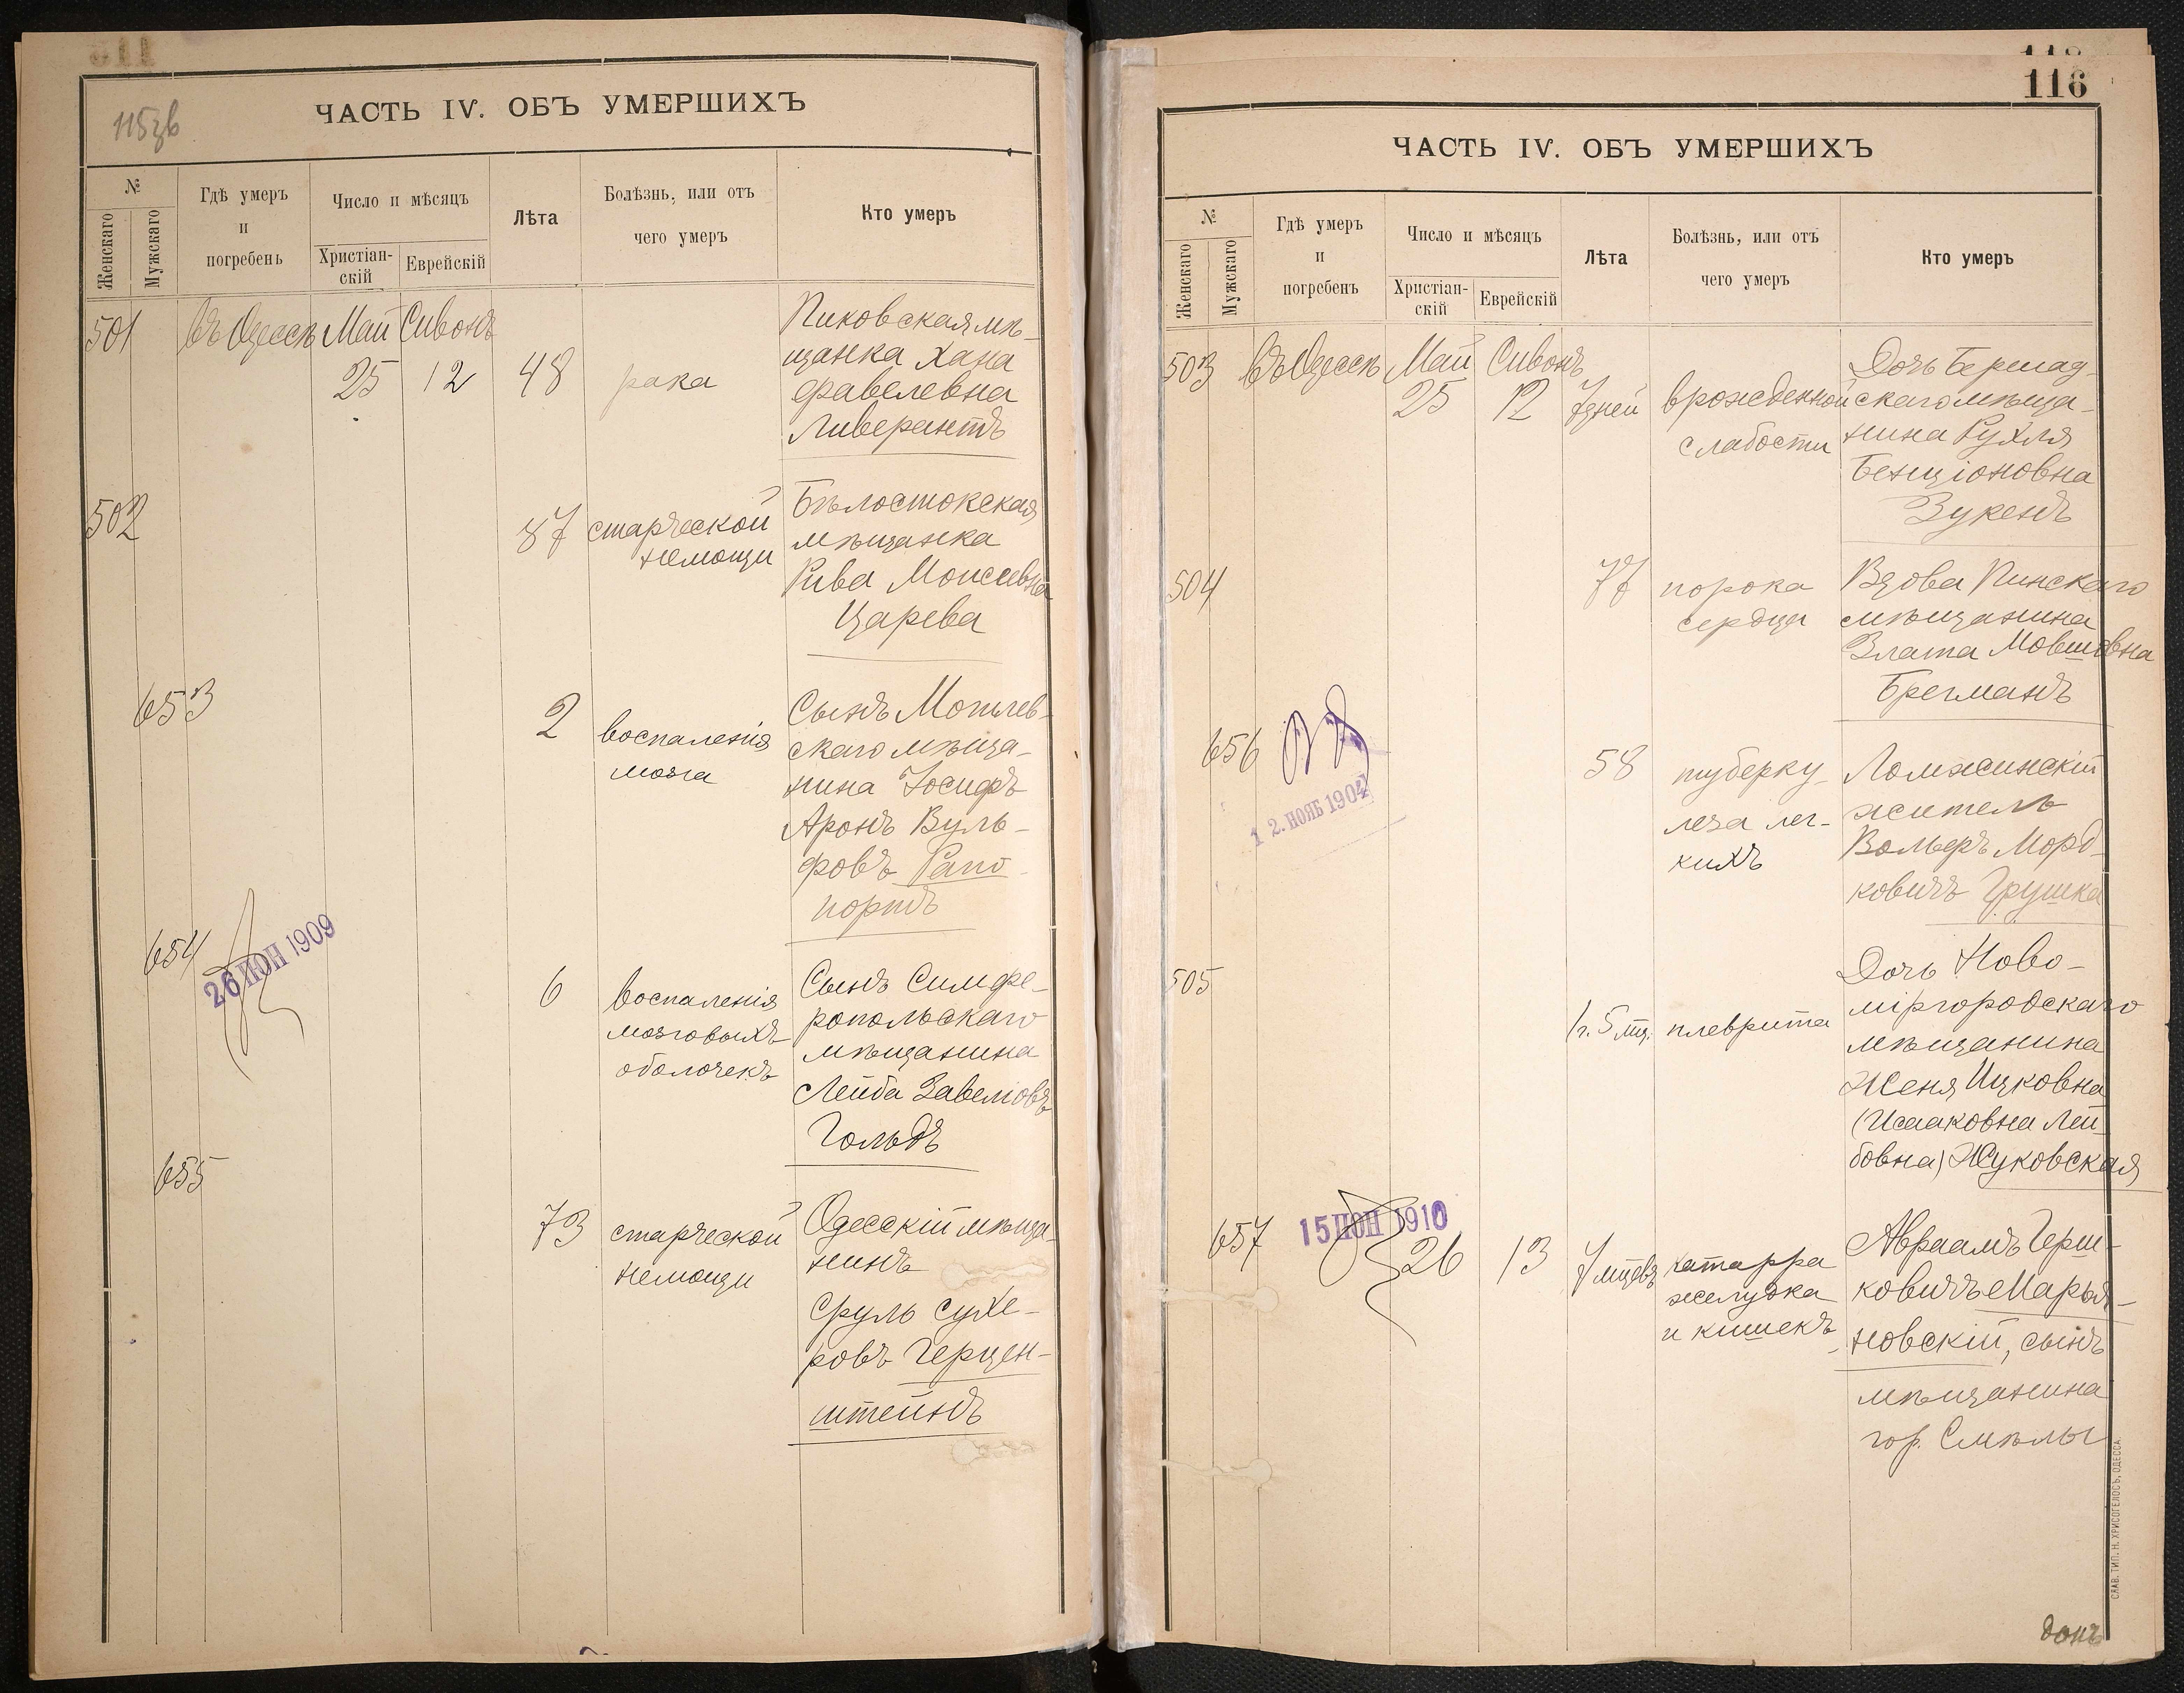 115 зв
ЧАСТЬ IV. ОБЪ УМЕРШИХЪ
№
Женскаго
Мужскаго
Гдѣ умеръ
и
погребенъ
Число и мѣсяцъ
Христіан-
скій
Еврейскій
Лѣта
Болѣзнь, или отъ
чего умеръ
Кто умеръ
501 Въ Одессѣ Май Сивонъ
25 12 48 рака
Пиковская мѣ-
щанка Хана
Фавелевна
Ливерантъ
502
87 старческой
немощи
Бѣлостокская
мѣщанка
Рива Моисеевна
Царева
653
2 воспаленія
мозга
Сынъ Могилев-
скаго мѣща-
нина Іосифъ
Аронъ Вуль-
фовъ Рапо-
портъ
654
26 ІЮН 1909
6 воспаленія
мозговыхъ
оболочекъ
Сынъ Симфе-
ропольскаго
мѣщанина
Лейба Завеліовъ
Гольдъ
655
73 старческой
немощи
Одесскій мѣща-
нинъ
Сруль Сухе-
ровъ Герцен-
штейнъ
116
ЧАСТЬ IV. ОБЪ УМЕРШИХЪ
№
Женскаго
Мужскаго
Гдѣ умеръ
и
погребенъ
Число и мѣсяцъ
Христіан-
скій
Еврейскій
Лѣта
Болѣзнь, или отъ
чего умеръ
Кто умеръ
503 Въ Одессѣ Май Сивонъ
25 12 7 дней врожденной
слабости
Дочь Бершад-
скаго мѣща-
нина Рухля
Бенціоновна
Зукенъ
504
77 порока
сердца
Вдова Пинскаго
мѣщанина
Злата Мовшовна
Брегманъ
656
12. НОЯБ 1904
58 туберку-
леза лег-
кихъ
Ломжинскій
житель
Вольфъ Морд-
ковичъ Грушка
505
1 г. 5 мц. плеврита
Дочь Ново-
міргородскаго
мѣщанина
Женя Ицковна
(Исааковна Лей-
бовна) Жуковская
657
15 ІЮН 1910
26 13 7 мцевъ катарра
желудка
и кишекъ
Авраамъ Герш-
ковичъ Марья-
новскій, сынъ
мѣщанина
гор. Смѣлы
СЛАВ. ТИП. Н. ХРИСОГЕЛОСЪ, ОДЕССА.